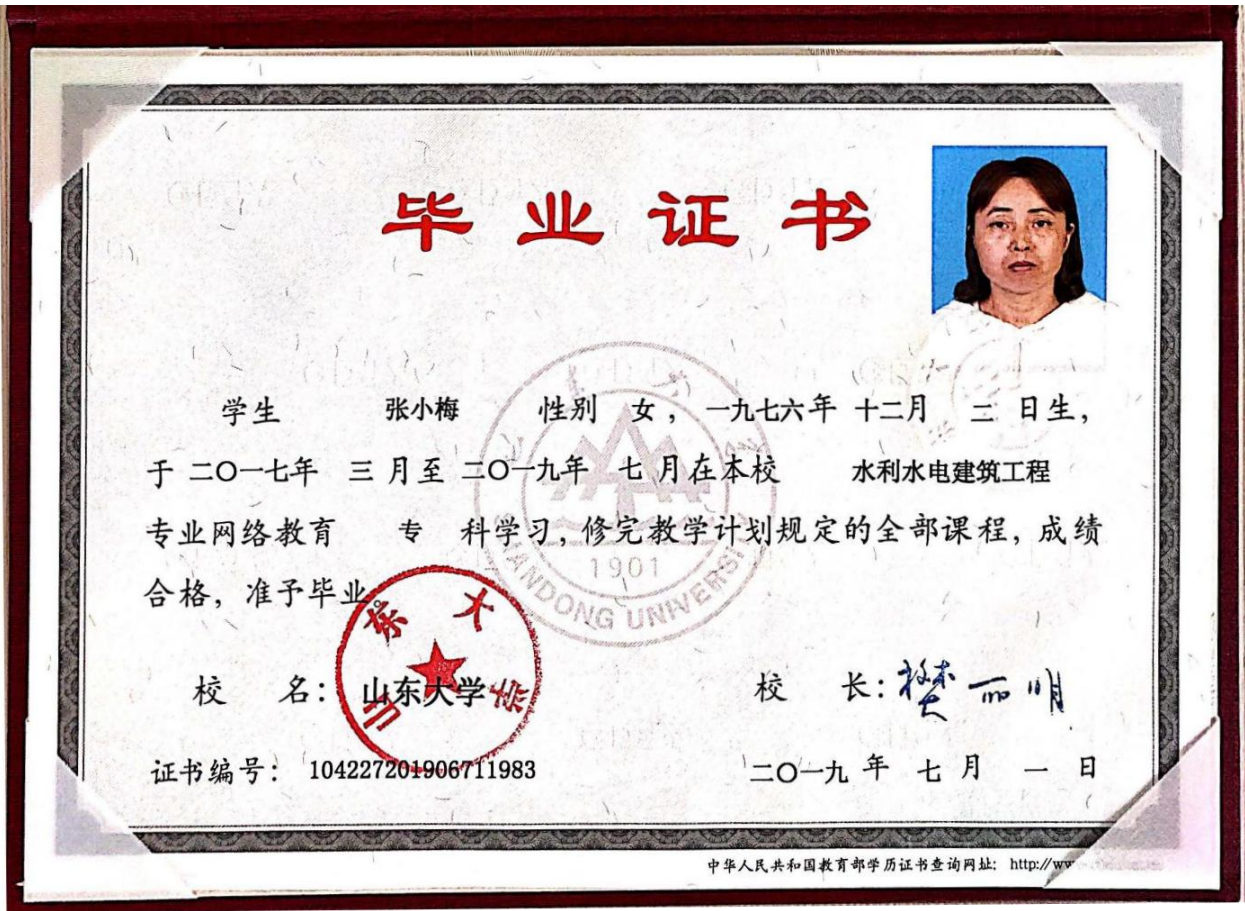 毕业证书
学生 张小梅 性别 女，一九七六年 十二月 二 日生，
于 二〇一七年 三 月至 二〇一九年 七 月在本校 水利水电建筑工程
专业网络教育 专 科学习，修完教学计划规定的全部课程，成绩
合格，准予毕业。
1901
SHANDONG UNIVERSITY
山东大学
校 名：山东大学
校 长：樊丽明
证书编号：104227201906711983
二〇一九 年 七 月 一 日
中华人民共和国教育部学历证书查询网址： http://ww